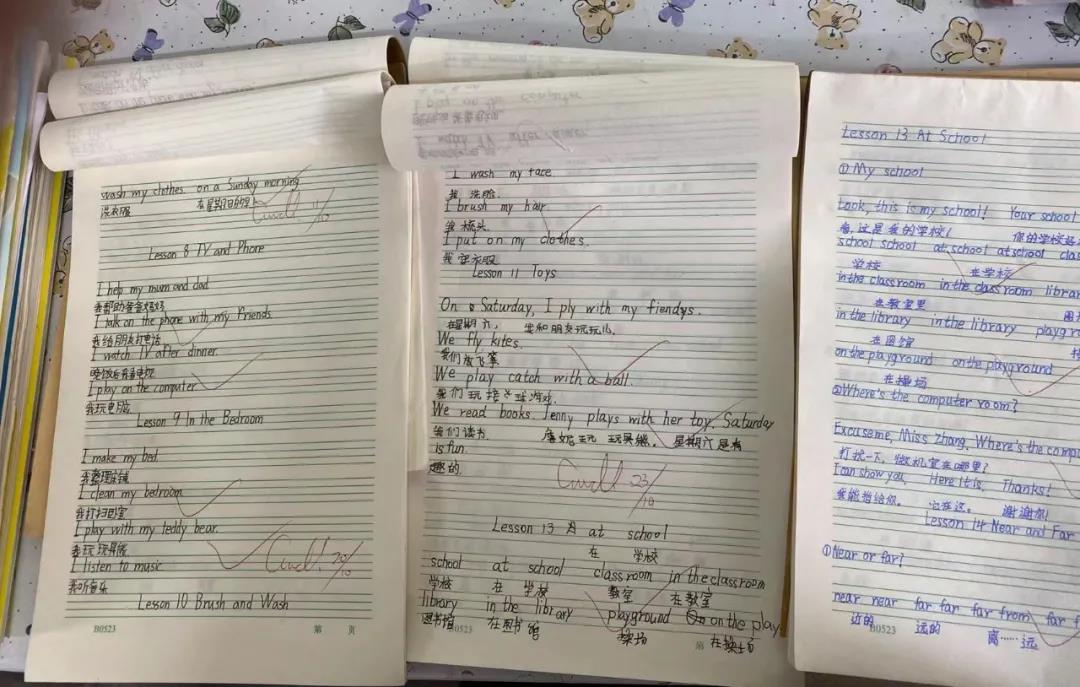 wash my clothes on a Sunday morning
洗衣服 在星期日的早上
Lesson 8 TV and Phone
I help my mum and dad
我帮助爸爸妈妈
I talk on the phone with my friends
我给朋友打电话
I watch TV after dinner.
晚饭后看电视
I play on the computer
我玩电脑
Lesson 9 In the Bedroom
I make my bed
I clean my bedroom
我打扫卧室
I play with my teddy bear.
我玩玩具熊
I listen to music
我听音乐
Lesson 10 Brush and Wash
B0523 第 页
I play on the computer
I wash my face
我 洗脸.
I brush my hair
我 梳头.
I put on my clothes.
我 穿衣服
Lesson 11 Toys
On Saturday, I ply with my fiendys.
在星期六, 我和朋友玩玩儿.
We fly kites.
我们放飞筝
We play catch with a ball.
我们玩接球游戏.
We read books. Jenny plays with her toy. Saturday
我们读书. 詹妮玩玩具熊. 星期六是有
is fun.
趣的.
23/10
Lesson 13 at school
在 学校
school at school classroom in the classroom
学校 在学校 教室 在教室
library in the library playground on the play
图书馆 在图书馆 操场 在操场
B0523 第
Lesson 13 At School
①My school
Look, this is my school! Your school
看,这是我的学校! 你的学校
school school at school at school clas
学校 在学校
in the classroom in the classroom librar
在教室里
in the library in the library playgr
在图馆
on the playground on the playground
在操场
②Where's the computer room?
Excuse me, Miss Zhang. Where's the comp
打扰一下, 微机室在哪里?
I can show you. Here it is. Thanks!
我能指给你. 它在这. 谢谢你!
Lesson 14 Near and Far
①Near or far?
near near far far far from far f
近的 远的 离……远
B0523